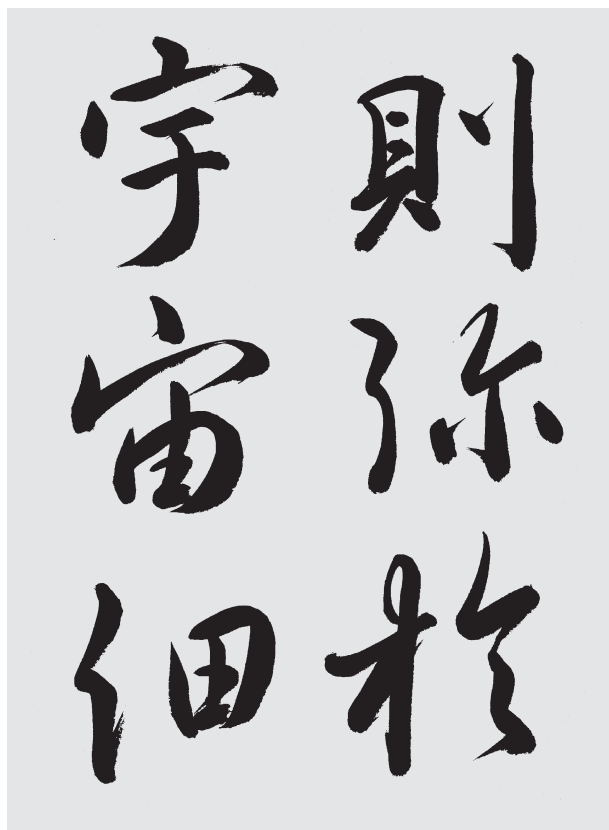 則弥於
宇宙細